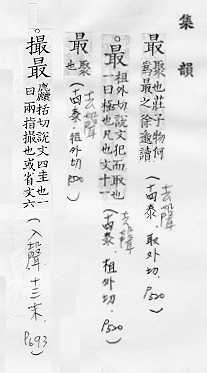 集韻
最 聚也莊子物何
為最之徐邈讀
(去聲 十四泰.取外切.P520)
。最 祖外切說文犯而取也
一曰極也凡也文十一
(去聲 十四泰.祖外切.P520)
最 聚
也
(去聲 十四泰.祖外切 P520)
。撮最 麤括切說文四圭也一
曰兩指撮也或省文六
(入聲 十三末.P693)